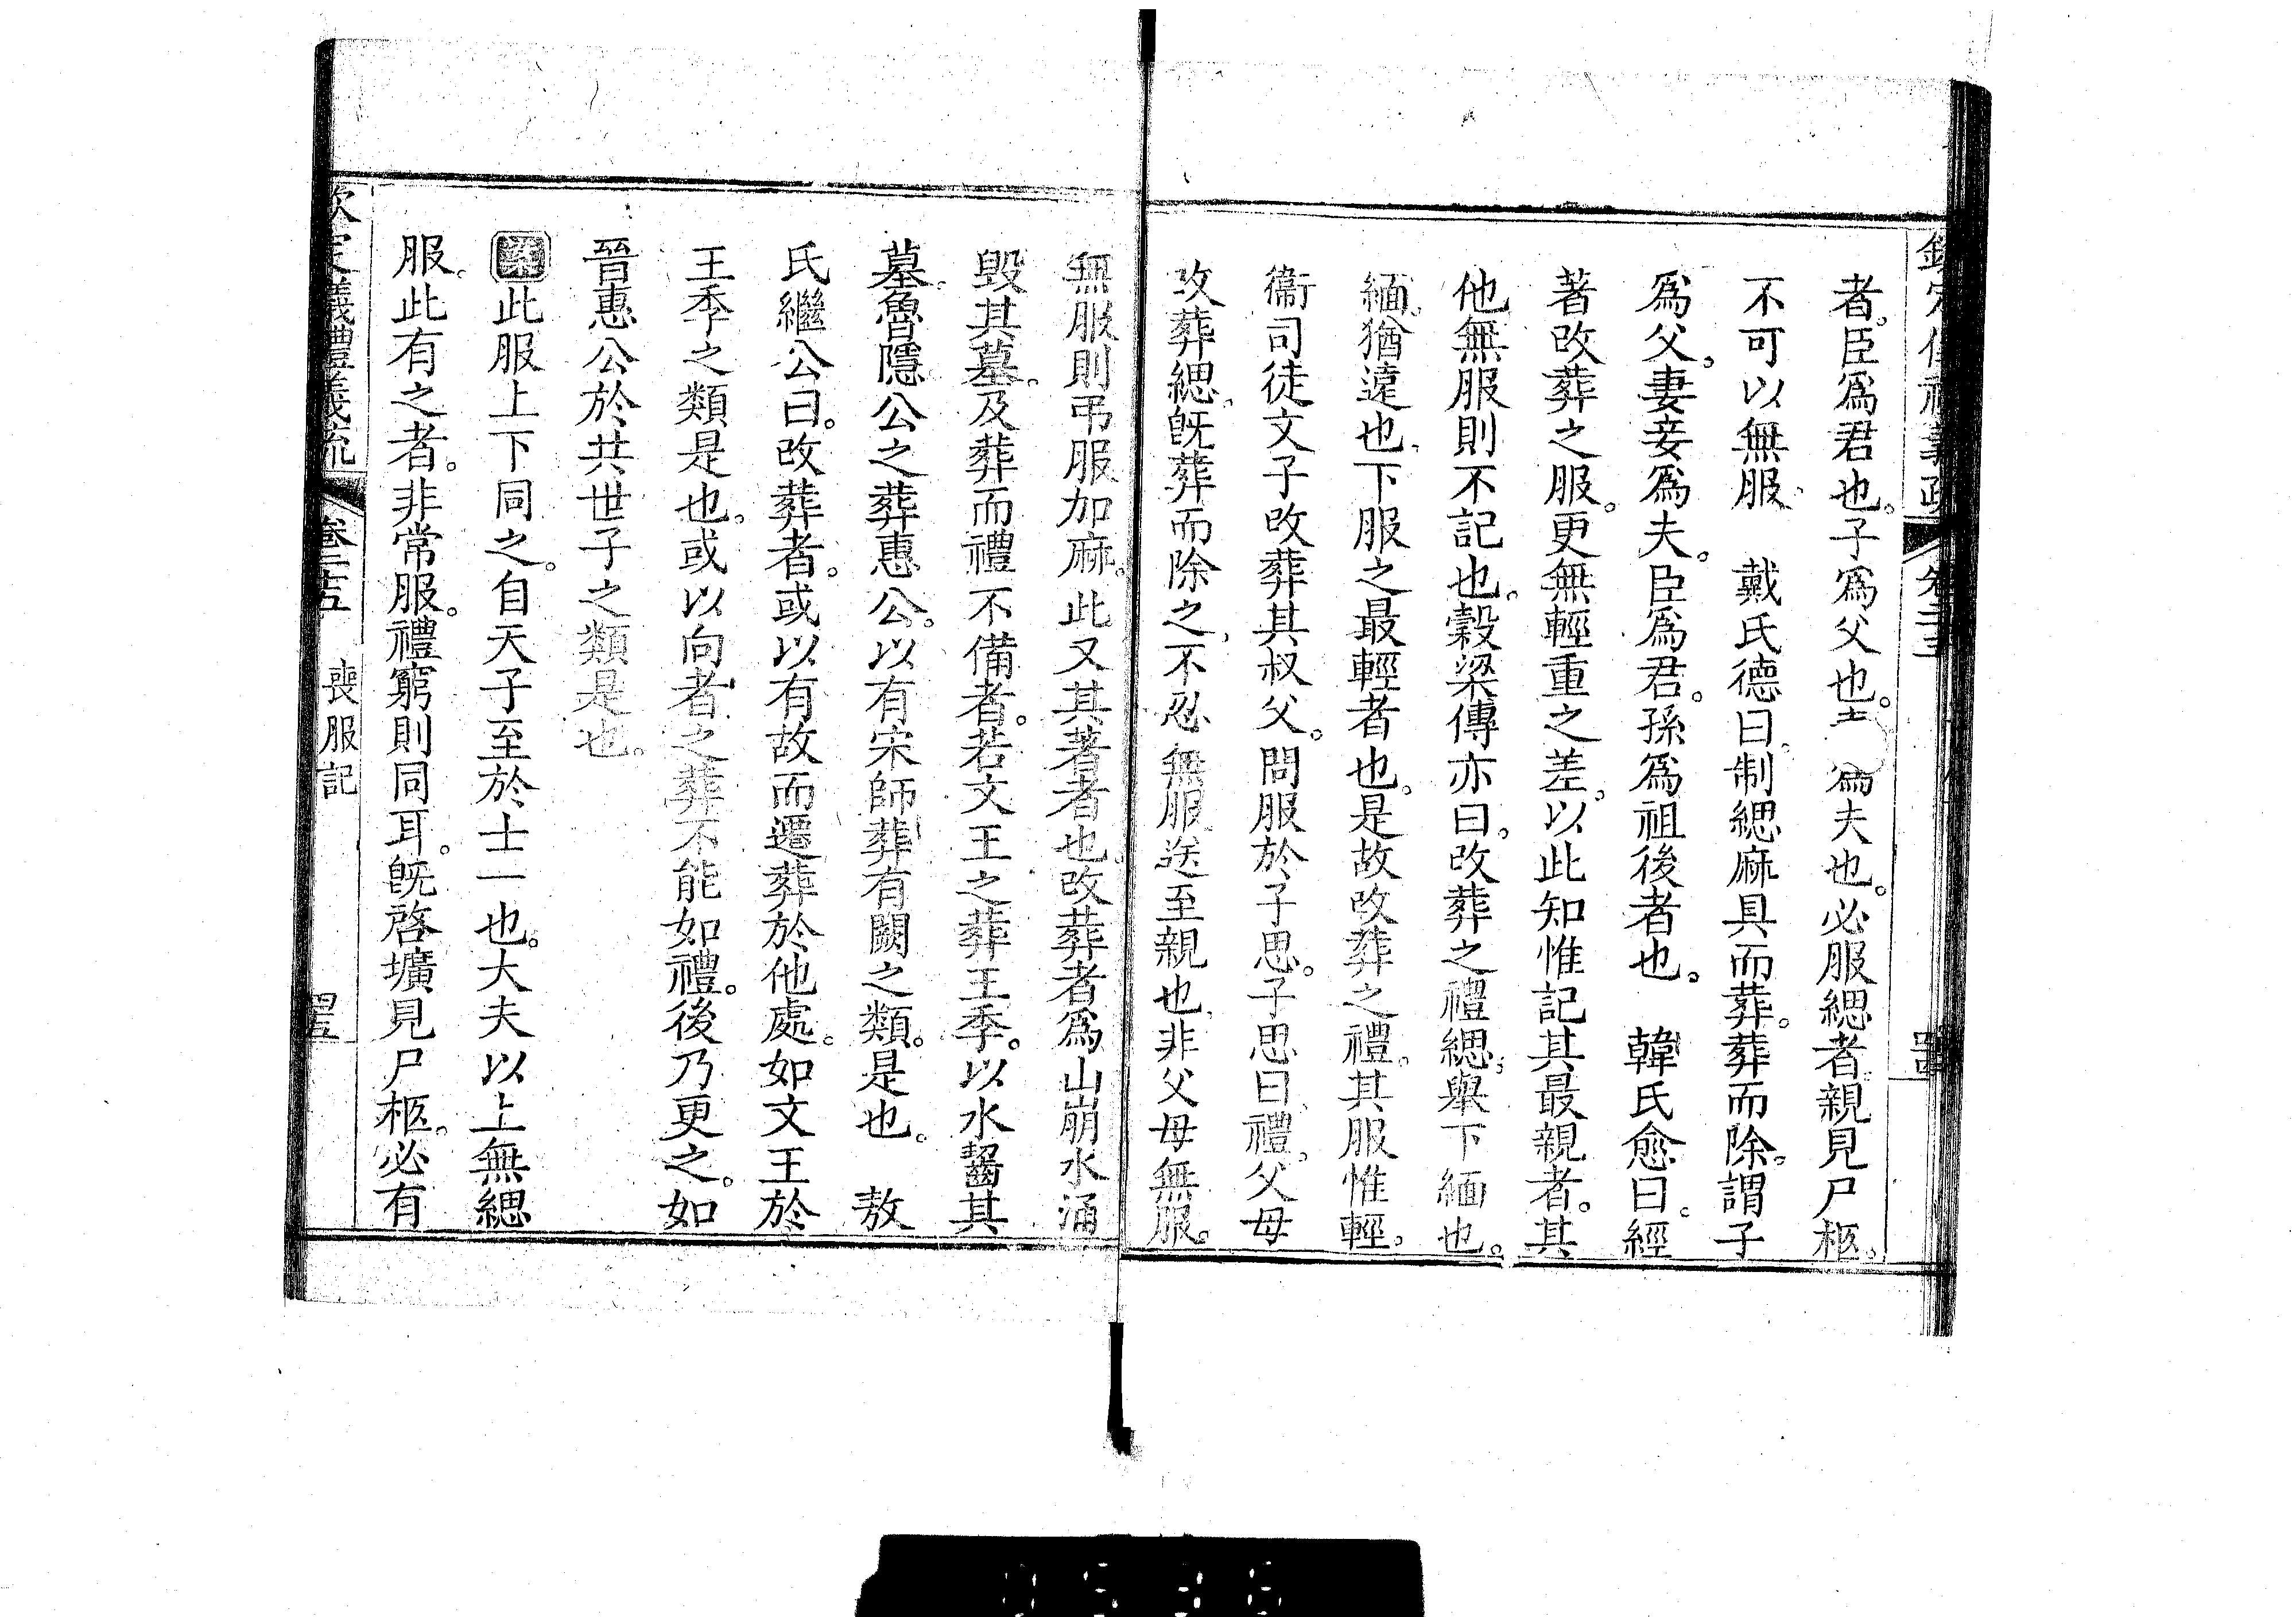 者。臣爲君也。子爲父也。爲夫也。必服緦者。親見尸柩。
不可以無服。戴氏德曰。制緦麻具而葬。葬而除。謂子
爲父。妻妾爲夫。臣爲君。孫爲祖後者也。韓氏愈曰。經
著改葬之服。更無輕重之差。以此知惟記其最親者。其
他無服則不記也。穀梁傳亦曰。改葬之禮緦。舉下緬也。
緬。猶遠也。下服之最輕者也。是故改葬之禮。其服惟輕。
衞司徒文子改葬其叔父。問服於子思。子思曰。禮。父母
改葬緦。旣葬而除之。不忍無服送至親也。非父母無服。
無服則弔服加麻。此又其著者也。改葬者爲山崩水涌
毀其墓。及葬而禮不備者。若文王之葬王季。以水齧其
墓。魯隱公之葬惠公。以有宋師。葬有闕之類。是也。敖
氏繼公曰。改葬者。或以有故而遷葬於他處。如文王於
王季之類是也。或以向者之葬不能如禮。後乃更之。如
晉惠公於共世子之類是也。
案此服上下同之。自天子至於士一也。大夫以上無緦
服。此有之者。非常服。禮窮則同耳。旣啓壙見尸柩。必有
欽定儀禮義疏 卷二十五 喪服記